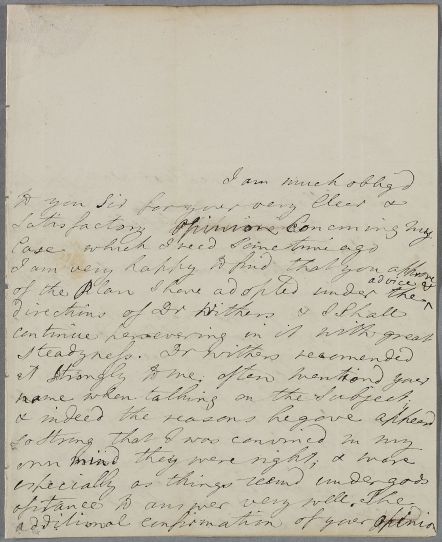 I am much oblig'd
to you Sir for your very Clear &
Satisfactory Opinion Concerning my
Case which I rec'd Sometime ago
I am very happy to find that you approve
of the Plan I have adopted under the advice &
directions of Dr Withers & I Shall
continue persevering in it with great
Steadyness. Dr Withers recomended
it Strongly to me, often mentiond your
name when talking on the Subject,
& indeed the reasons he gave appeard
so strong that I was convinced in my
own mind they were right, & more
especially as things seemd under gods
assistance to answer very well. The
additional confirmation of your opinion